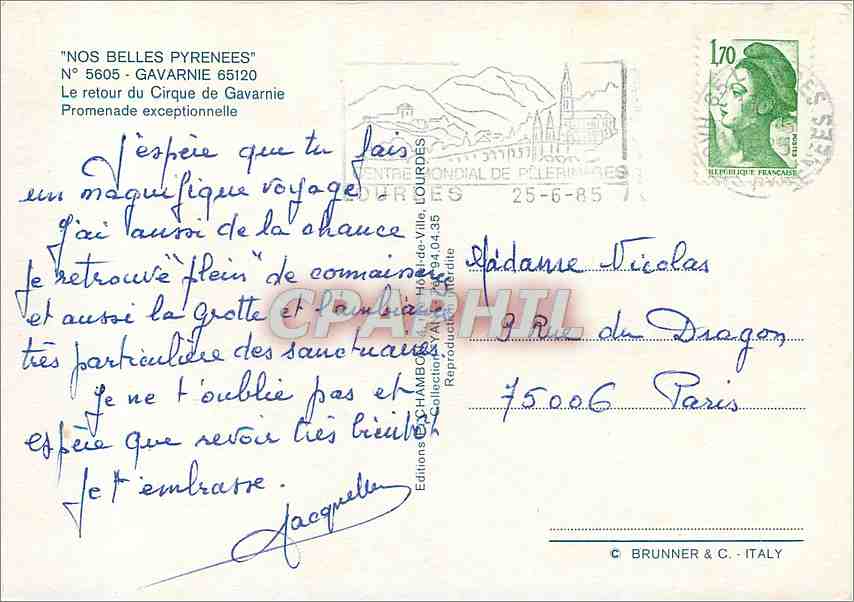 "NOS BELLES PYRENEES"
N° 5605 - GAVARNIE 65120
Le retour du Cirque de Gavarnie
Promenade exceptionnelle
J'espère que tu fais
un magnifique voyage
J'ai aussi de la chance
Je retrouve "plein" de connaissances
et aussi la grotte et l'ambiance
très particulière des sanctuaires.
Je ne t'oublie pas et
espère que revoir très bientôt
Je t'embrasse.
Jacqueline
CENTRE MONDIAL DE PÈLERINAGES
LOURDES 25-6-85
1,70
POSTES
REPUBLIQUE FRANÇAISE
Editions CHAMBO Hôtel-de-Ville, LOURDES
Collection YAN 94.04.35
Reproduction interdite
CPARPHIL
Madame Nicolas
9 Rue du Dragon
75006 Paris
© BRUNNER & C. - ITALY